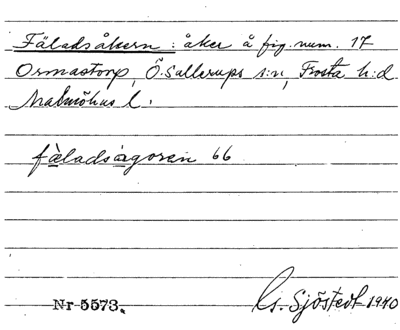 Fäladsåkern: åker å fig. num. 17
Ormastorp, Ö. Sallerups s:n, Frosta h:d
Malmöhus l.
fàladsågoran 66
Nr 5573.
G. Sjöstedt 1940